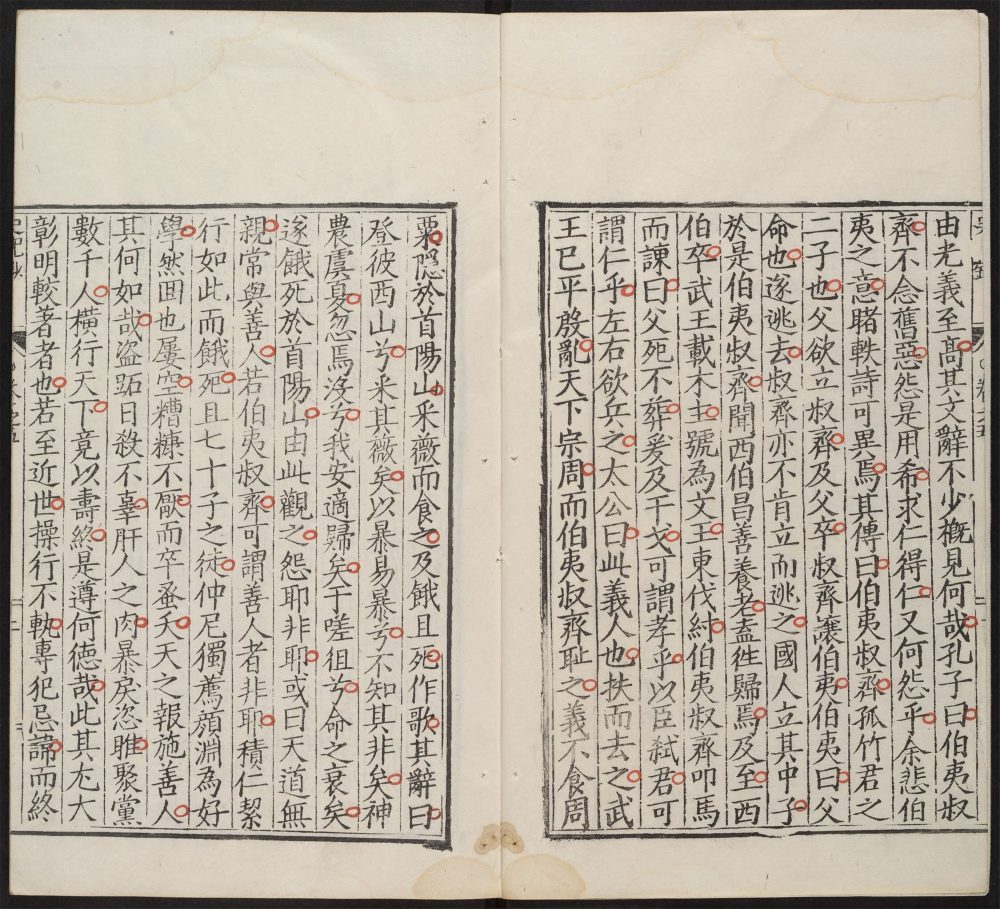 由光義至高其文辭不少槪見何哉孔子曰伯夷叔
齊不念舊惡怨是用希求仁得仁又何怨乎余悲伯
夷之意睹軼詩可異焉其傳曰伯夷叔齊孤竹君之
二子也父欲立叔齊及父卒叔齊讓伯夷伯夷曰父
命也遂逃去叔齊亦不肯立而逃之國人立其中子
於是伯夷叔齊聞西伯昌善養老盍徃歸焉及至西
伯卒武王載木主號為文王東伐紂伯夷叔齊叩馬
而諫曰父死不葬爰及干戈可謂孝乎以臣弒君可
謂仁乎左右欲兵之太公曰此義人也扶而去之武
王已平殷亂天下宗周而伯夷叔齊耻之義不食周
粟隱於首陽山采薇而食之及餓且死作歌其辭曰
登彼西山兮采其薇矣以暴易暴兮不知其非矣神
農虞夏忽焉沒兮我安適歸矣于嗟徂兮命之衰矣
遂餓死於首陽山由此觀之怨耶非耶或曰天道無
親常與善人若伯夷叔齊可謂善人者非耶積仁絜
行如此而餓死且七十子之徒仲尼獨薦顏淵為好
學然回也屢空糟糠不厭而卒蚤夭天之報施善人
其何如哉盜跖日殺不辜肝人之肉暴戾恣睢聚黨
數千人橫行天下竟以壽終是遵何德哉此其尤大
彰明較著者也若至近世操行不軌專犯忌諱而終